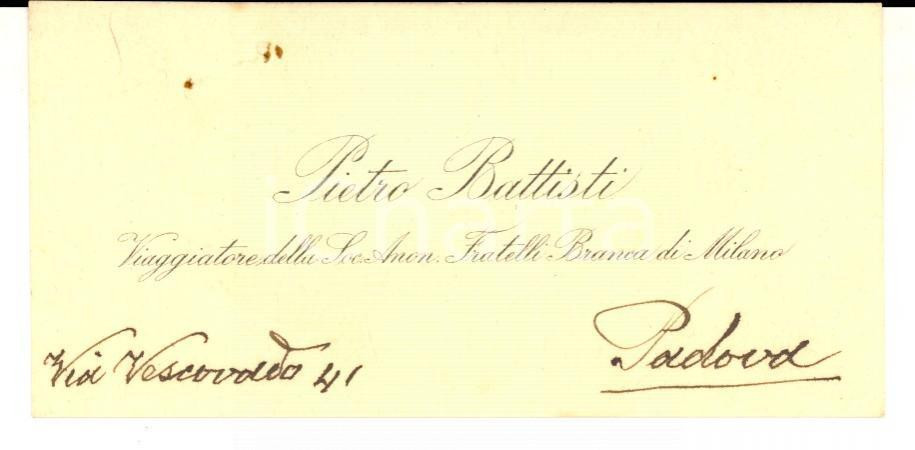 Pietro Battisti
Viaggiatore della Soc. Anon. Fratelli Branca di Milano
Via Vescovado 41
Padova